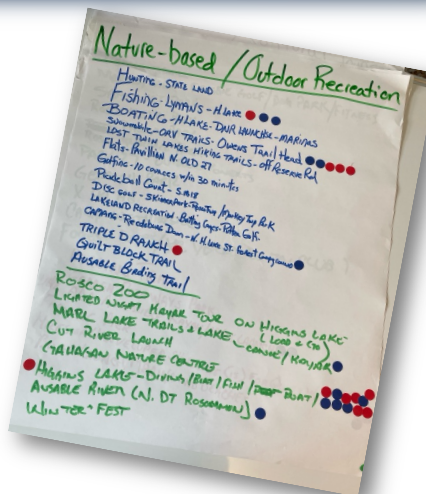 Nature-based / Outdoor Recreation
HUNTING - STATE LAND
Fishing - LYMANS - H LAKE
BOATING - H LAKE - DNR LAUNCHSE - MARINAS
Snowmobile - ORV TRAILS - OWENS Trail Head
LOST TWIN LAKES HIKING TRAILS - off Reserve Rd
Flats - Pavillion N. OLD 27
Golfing - 10 courses w/in 30 minutes
Pickle ball Court -
DISC GOLF - SKINNER PARK -
LAKELAND RECREATION - Batting Cages - Putter Golf -
CAMPING - Reedsburg Dam - N. H. Lake St. Forest Campground
TRIPLE D RANCH
QUILT BLOCK TRAIL
Ausable Birding Trail
ROSCO ZOO
LIGHTED NIGHT KAYAK TOUR ON HIGGINS LAKE
MARL LAKE TRAILS & LAKE - CANOE/KAYAK
CUT RIVER LAUNCH
GAHAGAN NATURE CENTRE
HIGGINS LAKE - DIVING / BOAT / FISH / BOAT /
AUSABLE RIVER (N. DT ROSCOMMON)
WINTER FEST